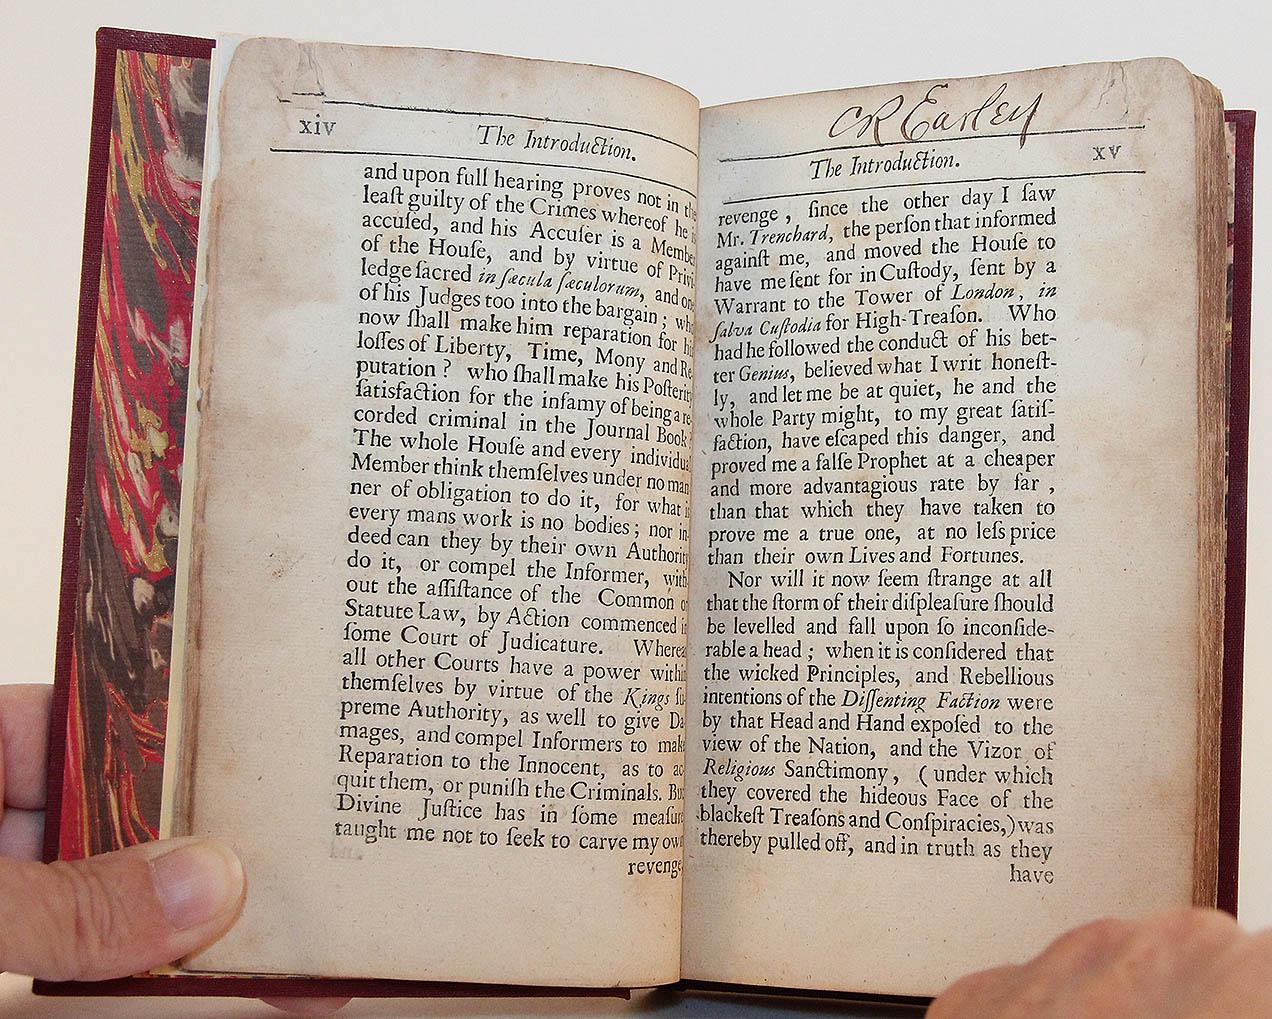 xiv
The Introduction.
and upon full hearing proves not in the
leaſt guilty of the Crimes whereof he is
accuſed, and his Accuſer is a Membe
of the Houſe, and by virtue of Privi
ledge ſacred in ſæcula ſæculorum, and one
of his Judges too into the bargain ; who
now ſhall make him reparation for his
loſſes of Liberty, Time, Mony and Re
putation ? who ſhall make his Poſterity
ſatisfaction for the infamy of being a re
corded criminal in the Journal Book ?
The whole Houſe and every individual
Member think themſelves under no man
ner of obligation to do it, for what is
every mans work is no bodies ; nor in
deed can they by their own Authority
do it, or compel the Informer, with
out the aſſiſtance of the Common or
Statute Law, by Action commenced in
ſome Court of Judicature. Wherea
all other Courts have a power within
themſelves by virtue of the Kings ſu
preme Authority, as well to give Da
mages, and compel Informers to make
Reparation to the Innocent, as to ac
quit them, or puniſh the Criminals. But
Divine Juſtice has in ſome meaſure
taught me not to ſeek to carve my own
revenge,
CR Earley
The Introduction.
xv
revenge, ſince the other day I ſaw
Mr. Trenchard, the perſon that informed
againſt me, and moved the Houſe to
have me ſent for in Cuſtody, ſent by a
Warrant to the Tower of London, in
ſalva Cuſtodia for High-Treaſon. Who
had he followed the conduct of his bet-
ter Genius, believed what I writ honeſt-
ly, and let me be at quiet, he and the
whole Party might, to my great ſatiſ-
faction, have eſcaped this danger, and
proved me a falſe Prophet at a cheaper
and more advantagious rate by far ,
than that which they have taken to
prove me a true one, at no leſs price
than their own Lives and Fortunes.
Nor will it now ſeem ſtrange at all
that the ſtorm of their diſpleaſure ſhould
be levelled and fall upon ſo inconſide-
rable a head ; when it is conſidered that
the wicked Principles, and Rebellious
intentions of the Diſſenting Faction were
by that Head and Hand expoſed to the
view of the Nation, and the Vizor of
Religious Sanctimony, (under which
they covered the hideous Face of the
blackeſt Treaſons and Conſpiracies,) was
thereby pulled off, and in truth as they
have